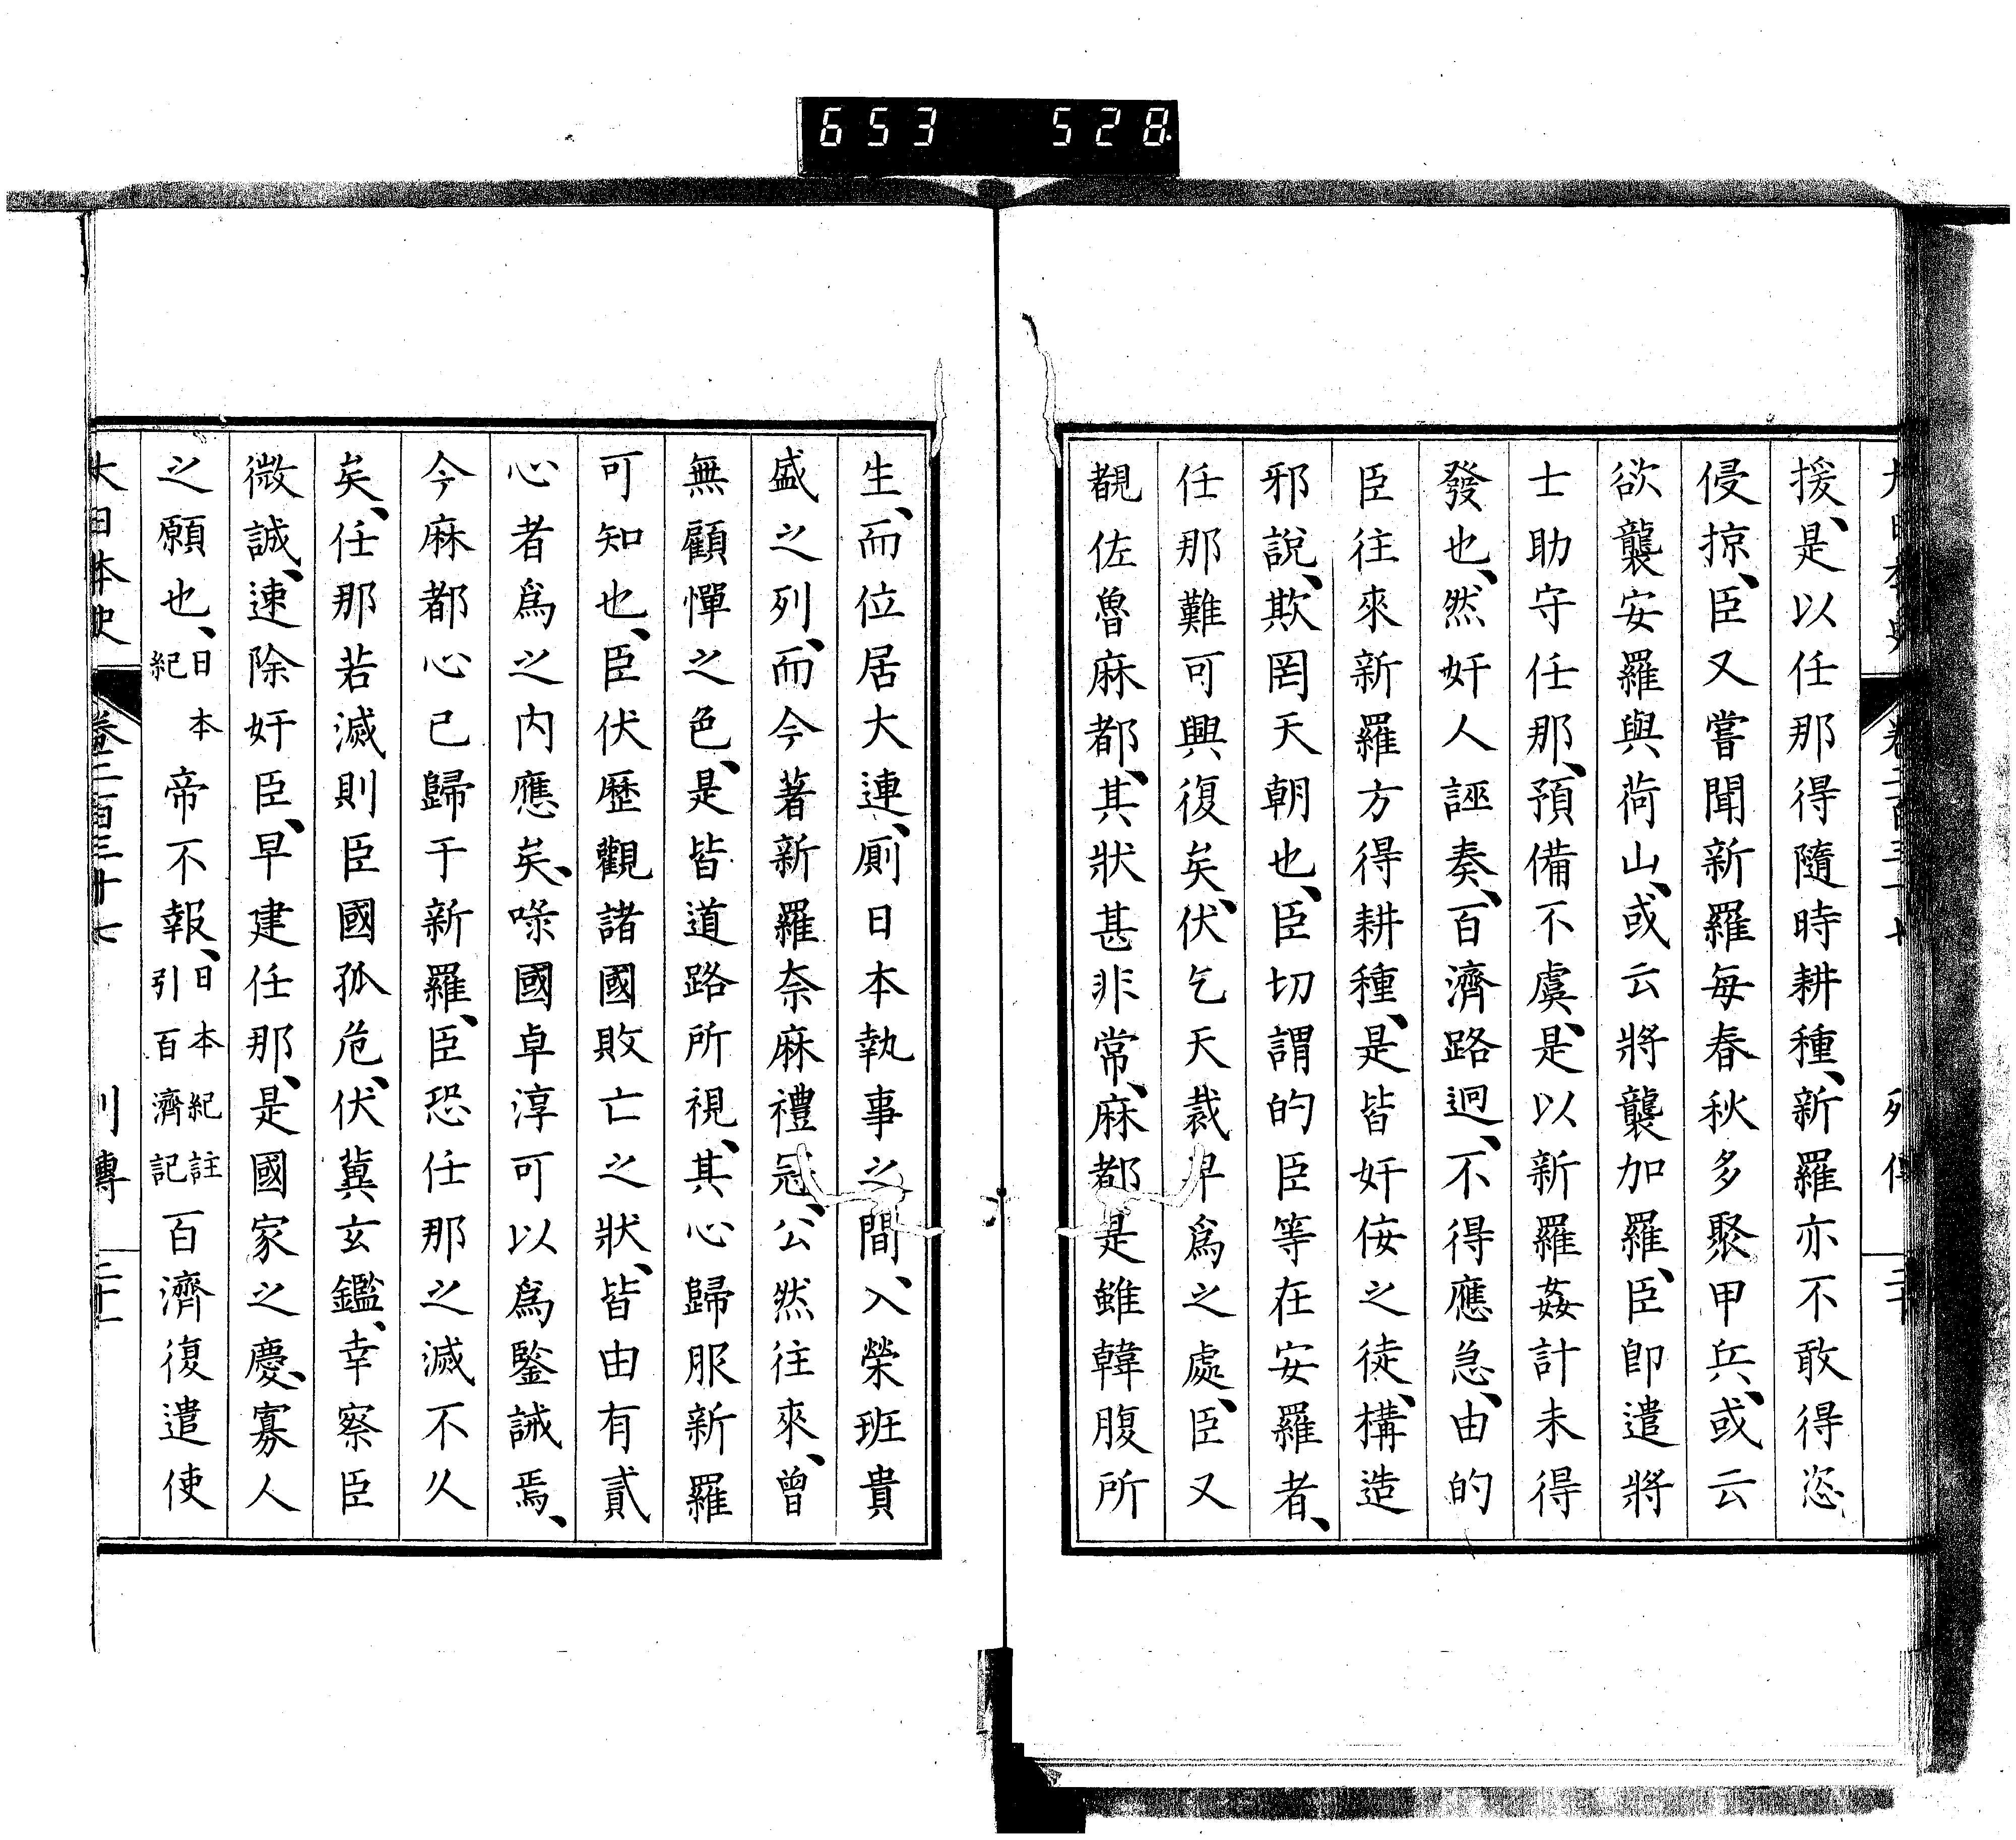 653 528
大日本史 卷二百三十七 列傳 二十
援、是以任那得隨時耕種、新羅亦不敢得恣
侵掠、臣又嘗聞新羅每春秋多聚甲兵、或云
欲襲安羅與荷山、或云將襲加羅、臣卽遣將
士助守任那、預備不虞、是以新羅姦計未得
發也、然奸人誣奏、百濟路迥、不得應急、由的
臣往來新羅方得耕種、是皆奸佞之徒、構造
邪說、欺罔天朝也、臣切謂的臣等在安羅者、
任那難可興復矣、伏乞天裁早爲之處、臣又
覩佐魯麻都、其狀甚非常、麻都是雖韓腹所
生、而位居大連、廁日本執事之間、入榮班貴
盛之列、而今著新羅奈麻禮冠、公然往來、曾
無顧憚之色、是皆道路所視、其心歸服新羅
可知也、臣伏歷觀諸國敗亡之狀、皆由有貳
心者爲之內應矣、㖨國卓淳可以爲鑒誡焉、
今麻都心已歸于新羅、臣恐任那之滅不久
矣、任那若滅則臣國孤危、伏冀玄鑑、幸察臣
微誠、速除奸臣、早建任那、是國家之慶、寡人
之願也、日本紀 帝不報、日本紀註引百濟記 百濟復遣使
大日本史 卷二百三十七 列傳 二十一